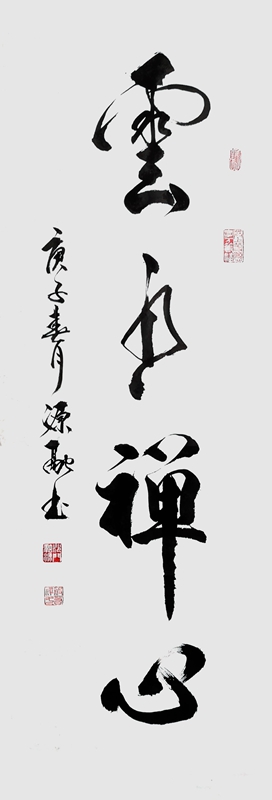 雲水禅心
庚子春月源融书